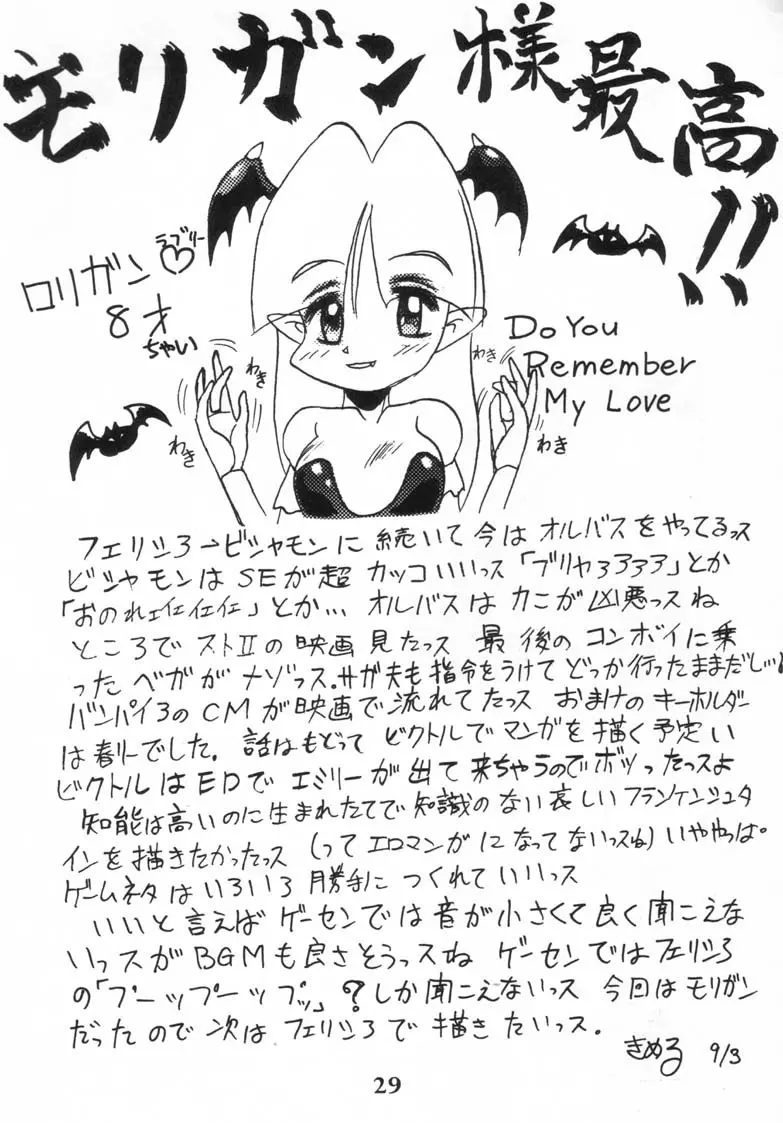 モリガン様最高!!
ラブリー
ロリガン♡
8才
ちゃい
わき
わき
わき
わき
Do You
Remember
My Love
フェリシヨ→ビシャモンに続いて今はオルバスをやってるっス
ビシャモンはSEが超カッコいいっス「ブリャァァァァ」とか
「おのれェィィィィ」とか… オルバスはカニが凶悪っスね
ところでストⅡの映画見たっス 最後のコンボイに乗
ったベガがナゾっス。サガ夫も指令をうけてどっか行ったままだしッ
バンパイヨのCMが映画で流れてたっス おまけのキーホルダー
は春リーでした。話はもどってビクトルでマンガを描く予定い
ビクトルはEDでエミリーが出て来ちゃうのでボツったっスよ
知能は高いのに生まれたてで知識のない哀しいフランケンシュタ
インを描きたかったっス (ってエロマンガになってないっスね) いややっぱ。
ゲームネタはいろいろ勝手につくれていいっス
いいと言えばゲーセンでは音が小さくて良く聞こえな
いっスがBGMも良さそうっスね ゲーセンではフェリシヨ
の「プーップーップッ」?しか聞こえないっス 今回はモリガン
だったので次はフェリシヨで描きたいっス。
きめる 9/3
29